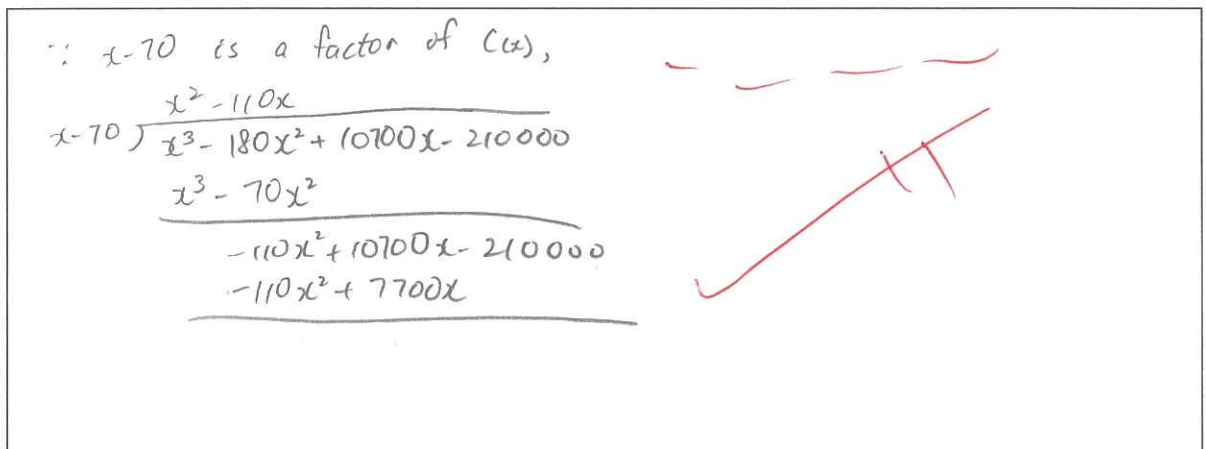 ∵ x-70 is a factor of C(x),
x² - 110x
x-70 ) x³ - 180x² + 10700x - 210000
x³ - 70x²
-110x² + 10700x - 210000
-110x² + 7700x